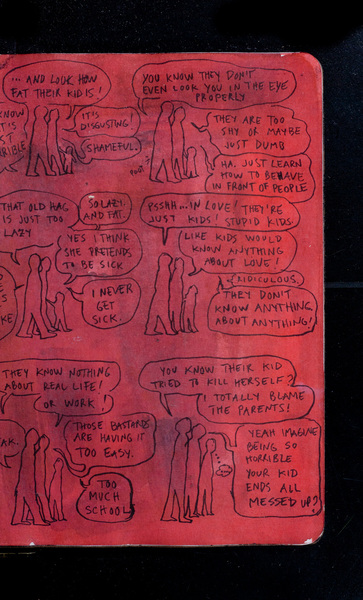 ... AND LOOK HOW
FAT THEIR KID IS!
KNOW
IT'S
IT'S
DISGUSTING!
SHAMEFUL.
YOU KNOW THEY DON'T
EVEN LOOK YOU IN THE EYE
PROPERLY
THEY ARE TOO
SHY OR MAYBE
JUST DUMB
HA. JUST LEARN
HOW TO BEHAVE
IN FRONT OF PEOPLE
THAT OLD HAG
IS JUST TOO
LAZY
SO LAZY
AND FAT.
YES I THINK
SHE PRETENDS
TO BE SICK
I NEVER
GET
SICK.
PSSHH...IN LOVE! THEY'RE
JUST KIDS! STUPID KIDS.
LIKE KIDS WOULD
KNOW ANYTHING
ABOUT LOVE!
RIDICULOUS.
THEY DON'T
KNOW ANYTHING
ABOUT ANYTHING!
THEY KNOW NOTHING
ABOUT REAL LIFE!
OR WORK!
THOSE BASTARDS
ARE HAVING IT
TOO EASY.
TOO
MUCH
SCHOOL
YOU KNOW THEIR KID
TRIED TO KILL HERSELF?
I TOTALLY BLAME
THE PARENTS!
YEAH IMAGINE
BEING SO
HORRIBLE
YOUR KID
ENDS ALL
MESSED UP?